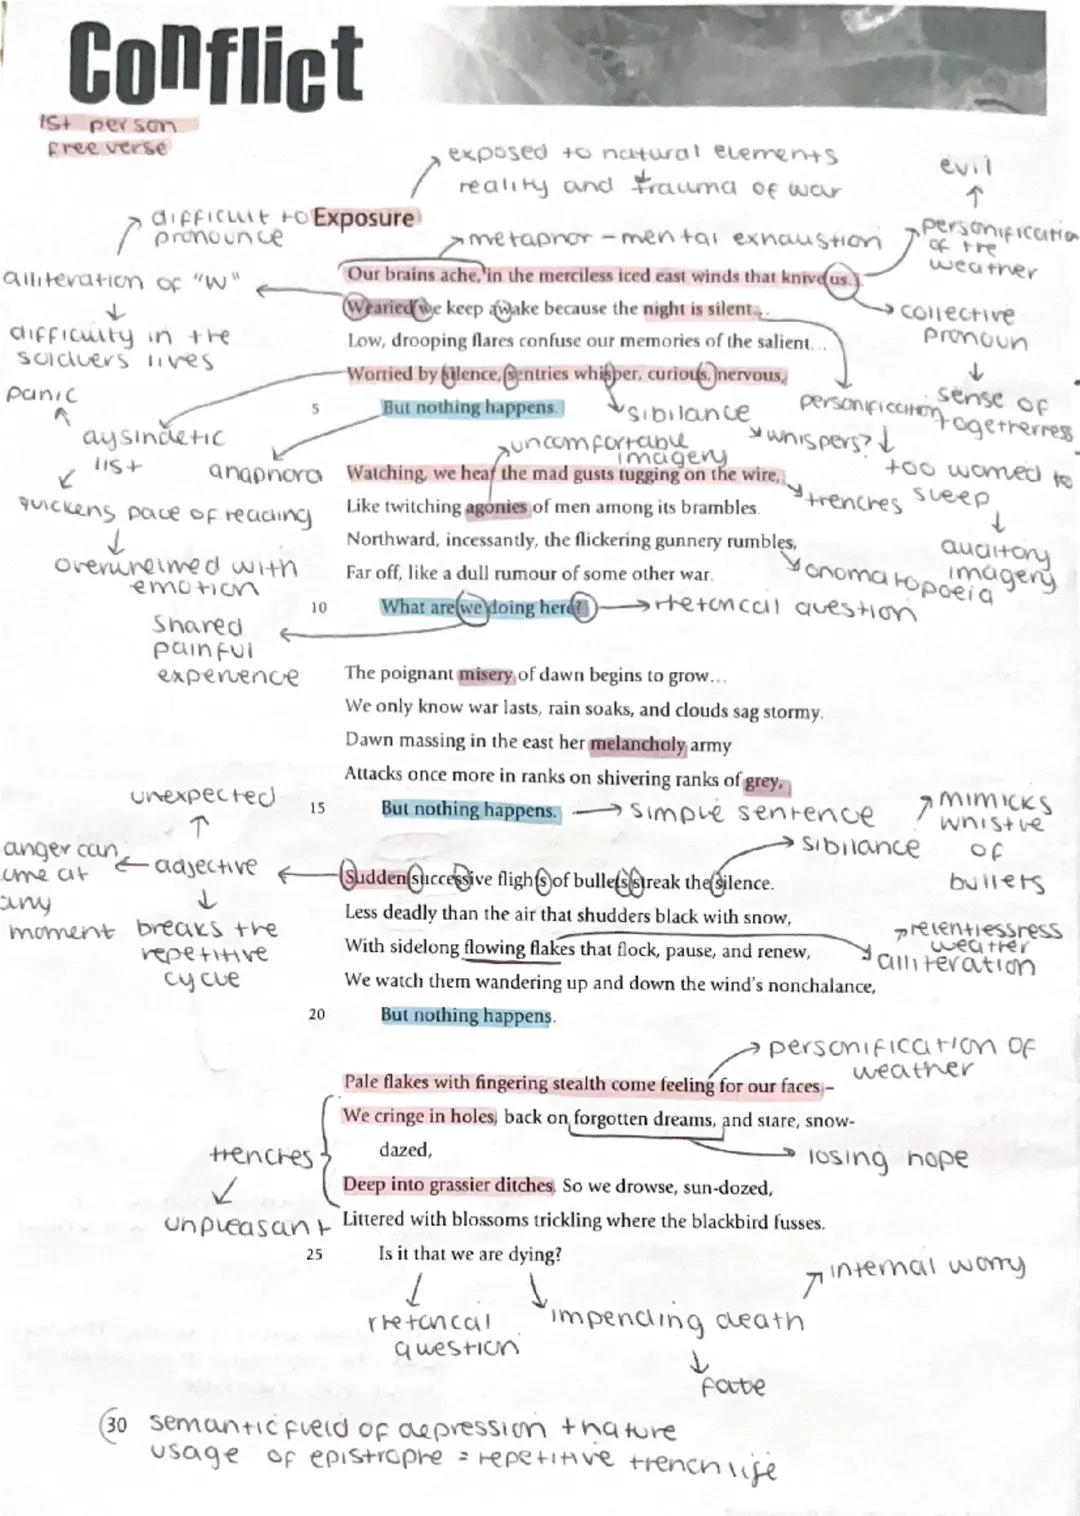 Conflict
1st person
free verse
exposed to natural elements
reality and trauma of war
evil
↑
difficult to
pronounce
Exposure
metaphor - mental exhaustion
personification
of the
weather
alliteration of "W"
Our brains ache, in the merciless iced east winds that knive us...
Wearied we keep awake because the night is silent...
collective
pronoun
difficulty in the
soldiers lives
Low, drooping flares confuse our memories of the salient...
Worried by silence, sentries whisper, curious, nervous,
panic
5 But nothing happens.
sibilance
personification
sense of
togetherness
aysindetic
list
anaphora
uncomfortable
imagery
whispers?
too worried to
sleep
Watching, we hear the mad gusts tugging on the wire,
trenches
quickens pace of reading
Like twitching agonies of men among its brambles.
auditory
imagery
overwhelmed with
emotion
Northward, incessantly, the flickering gunnery rumbles,
onomatopoeia
Far off, like a dull rumour of some other war.
10 What are we doing here?
rhetorical question
shared
painful
experience
The poignant misery of dawn begins to grow...
We only know war lasts, rain soaks, and clouds sag stormy.
Dawn massing in the east her melancholy army
Attacks once more in ranks on shivering ranks of grey,
unexpected
15 But nothing happens.
simple sentence
mimicks
whistle
of
bullets
sibilance
anger can
come at
any
moment
adjective
Sudden successive flights of bullets streak the silence.
Less deadly than the air that shudders black with snow,
breaks the
repetitive
cycle
relentlessness
weather
alliteration
With sidelong flowing flakes that flock, pause, and renew,
We watch them wandering up and down the wind's nonchalance,
20 But nothing happens.
personification of
weather
Pale flakes with fingering stealth come feeling for our faces –
We cringe in holes, back on forgotten dreams, and stare, snow-
dazed,
trenches
losing hope
Deep into grassier ditches. So we drowse, sun-dozed,
unpleasant
Littered with blossoms trickling where the blackbird fusses.
25 Is it that we are dying?
internal worry
rhetorical
question
impending death
fate
30 semantic field of depression + nature
usage of epistrophe = repetitive trench life